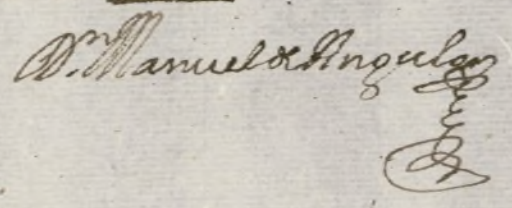 Dn. Manuel de Angulo